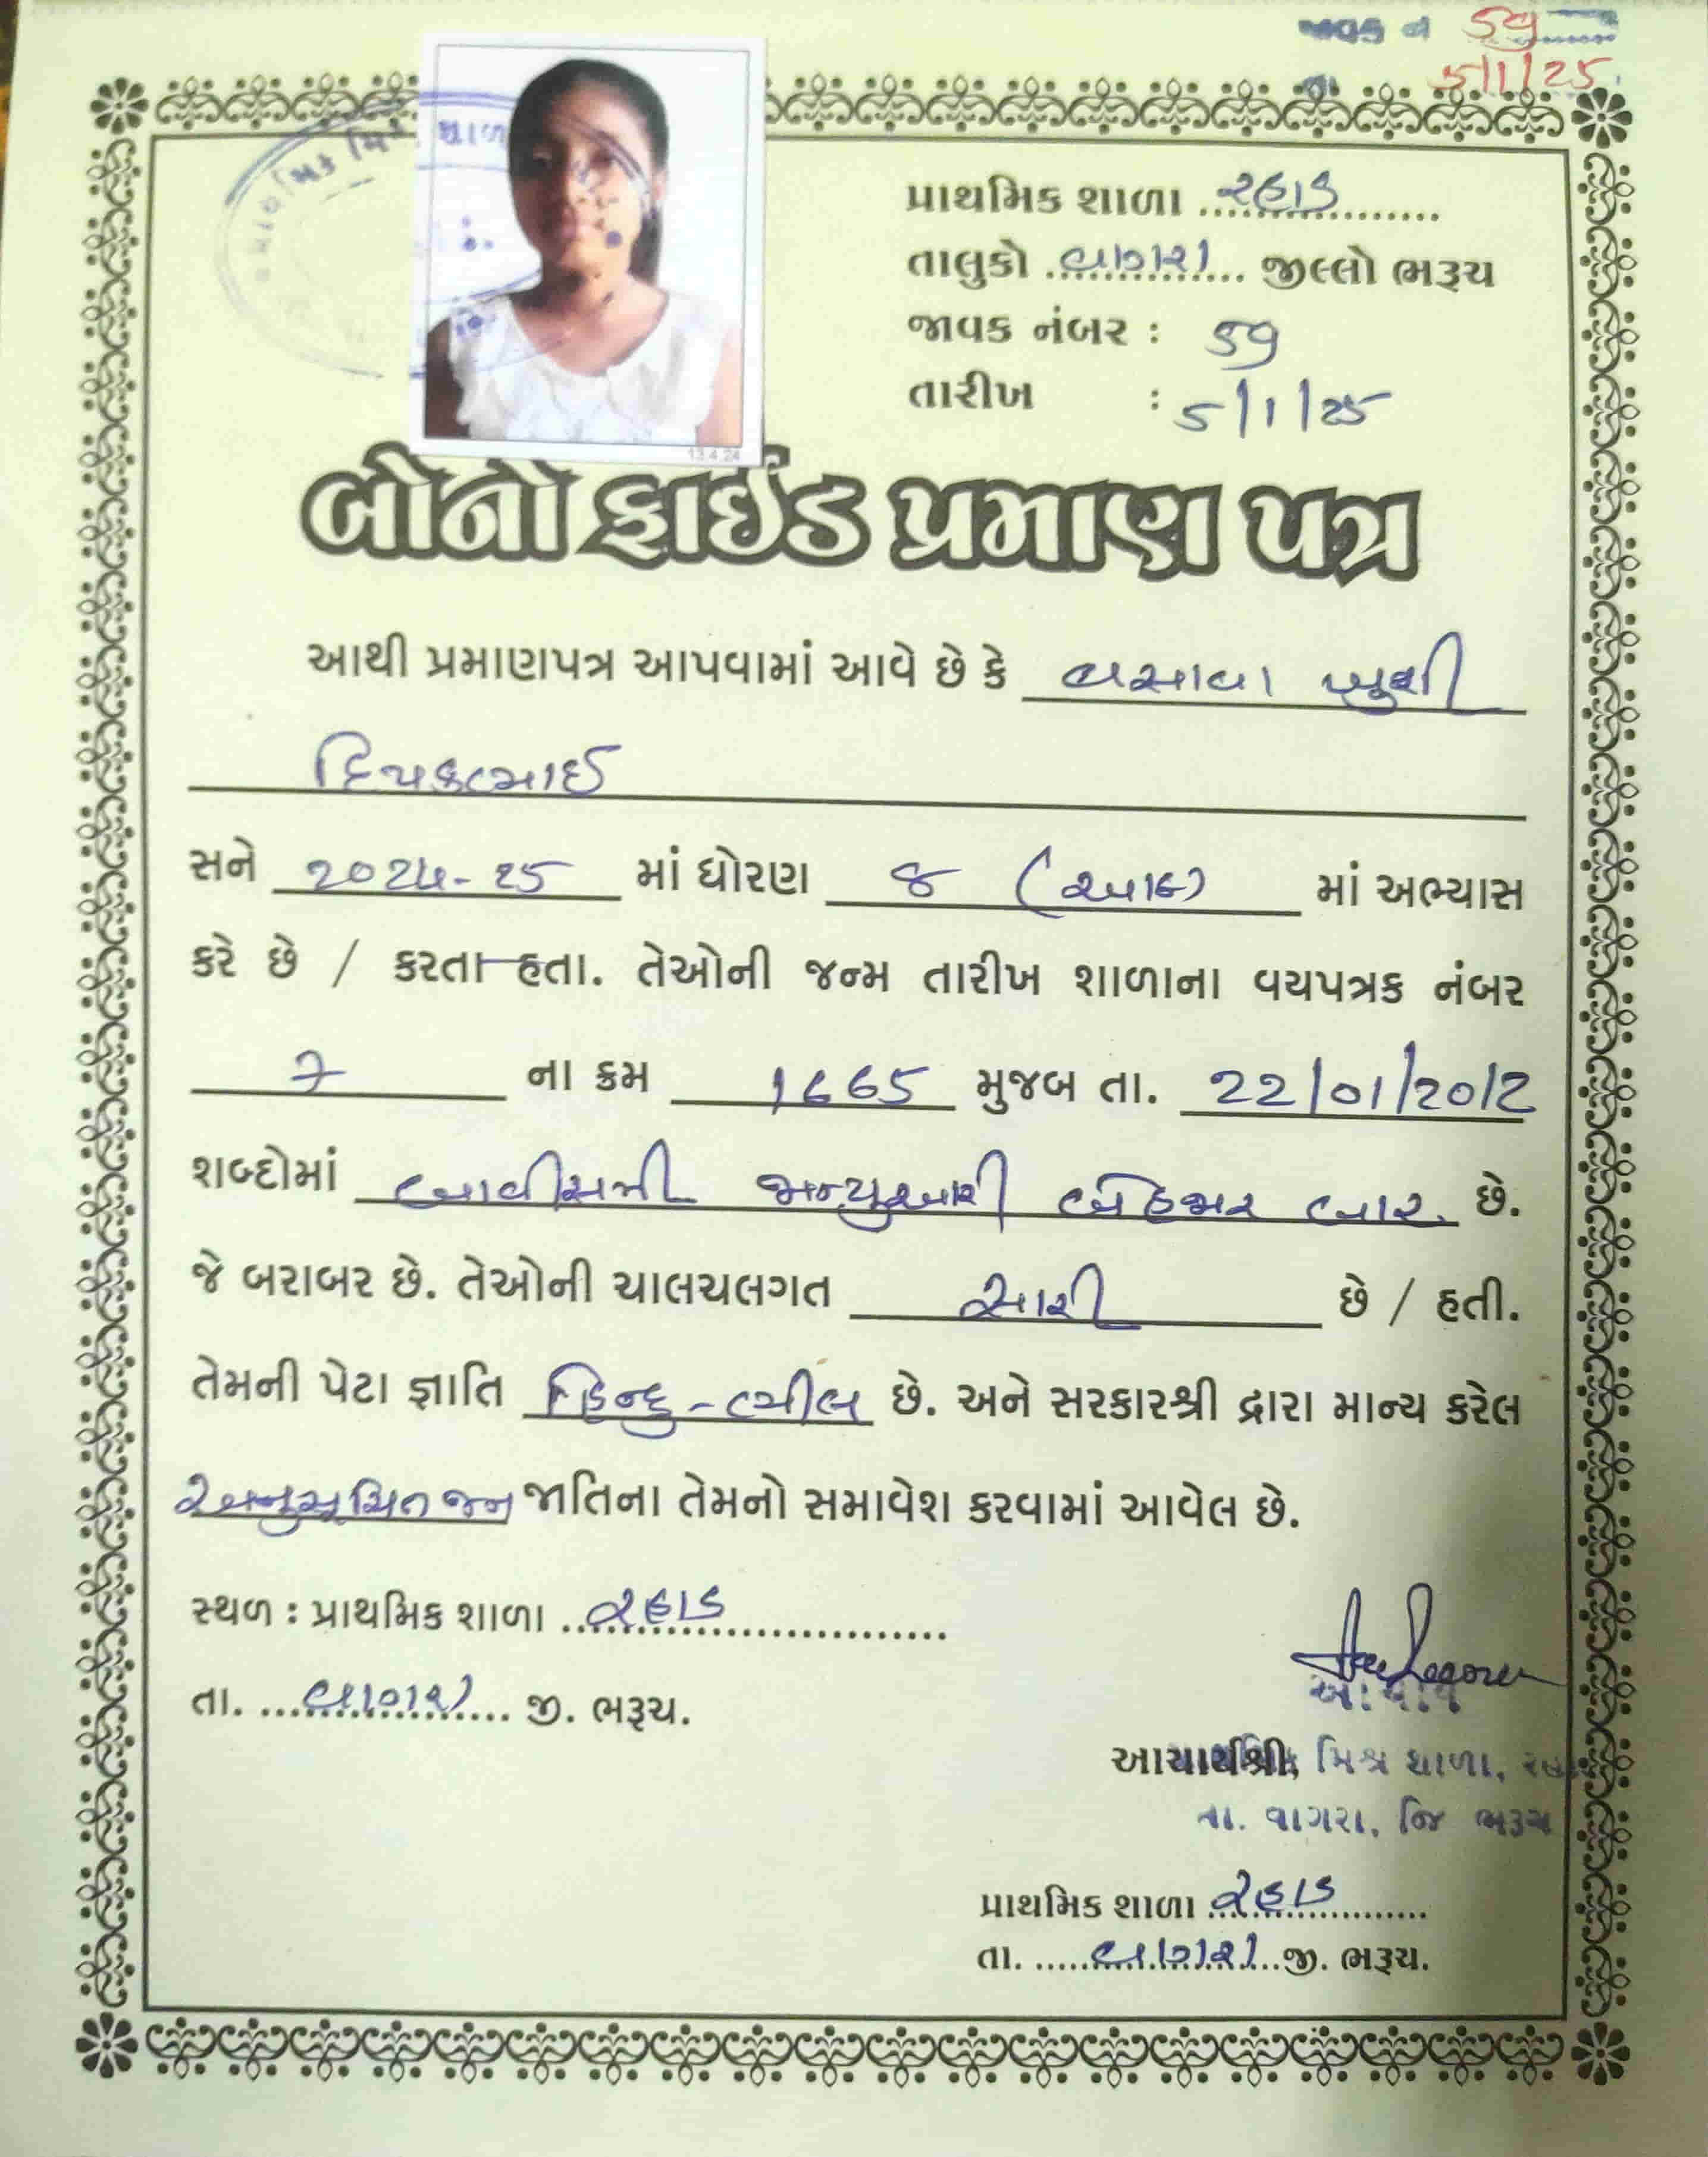 જાવક નં 59
5/1/25
પ્રાથમિક શાળા રહાડ
તાલુકો વાગરા જીલ્લો ભરૂચ
જાવક નંબર : 59
તારીખ : 5/1/25
13.4.24
બોનોફાઈડ પ્રમાણ પત્ર
આથી પ્રમાણપત્ર આપવામાં આવે છે કે વસાવા ખુશી
દિપકભાઈ
સને ૨૦૨૪-૨૫ માં ધોરણ ૮ (આઠ) માં અભ્યાસ
કરે છે / કરતા હતા. તેઓની જન્મ તારીખ શાળાના વયપત્રક નંબર
7 ના ક્રમ 1665 મુજબ તા. 22/01/2012
શબ્દોમાં બાવીસમી જાન્યુઆરી બેહજાર બાર. છે.
જે બરાબર છે. તેઓની ચાલચલગત સારી છે / હતી.
તેમની પેટા જ્ઞાતિ હિન્દુ - ભીલ છે. અને સરકારશ્રી દ્વારા માન્ય કરેલ
અનુસૂચિત જન જાતિના તેમનો સમાવેશ કરવામાં આવેલ છે.
સ્થળ : પ્રાથમિક શાળા રહાડ
તા. વાગરા જી. ભરૂચ.
આચાર્ય
આચાર્યશ્રી, મિશ્ર શાળા,
તા. વાગરા, જિ ભરૂચ
પ્રાથમિક શાળા રહાડ
તા. વાગરા જી. ભરૂચ.